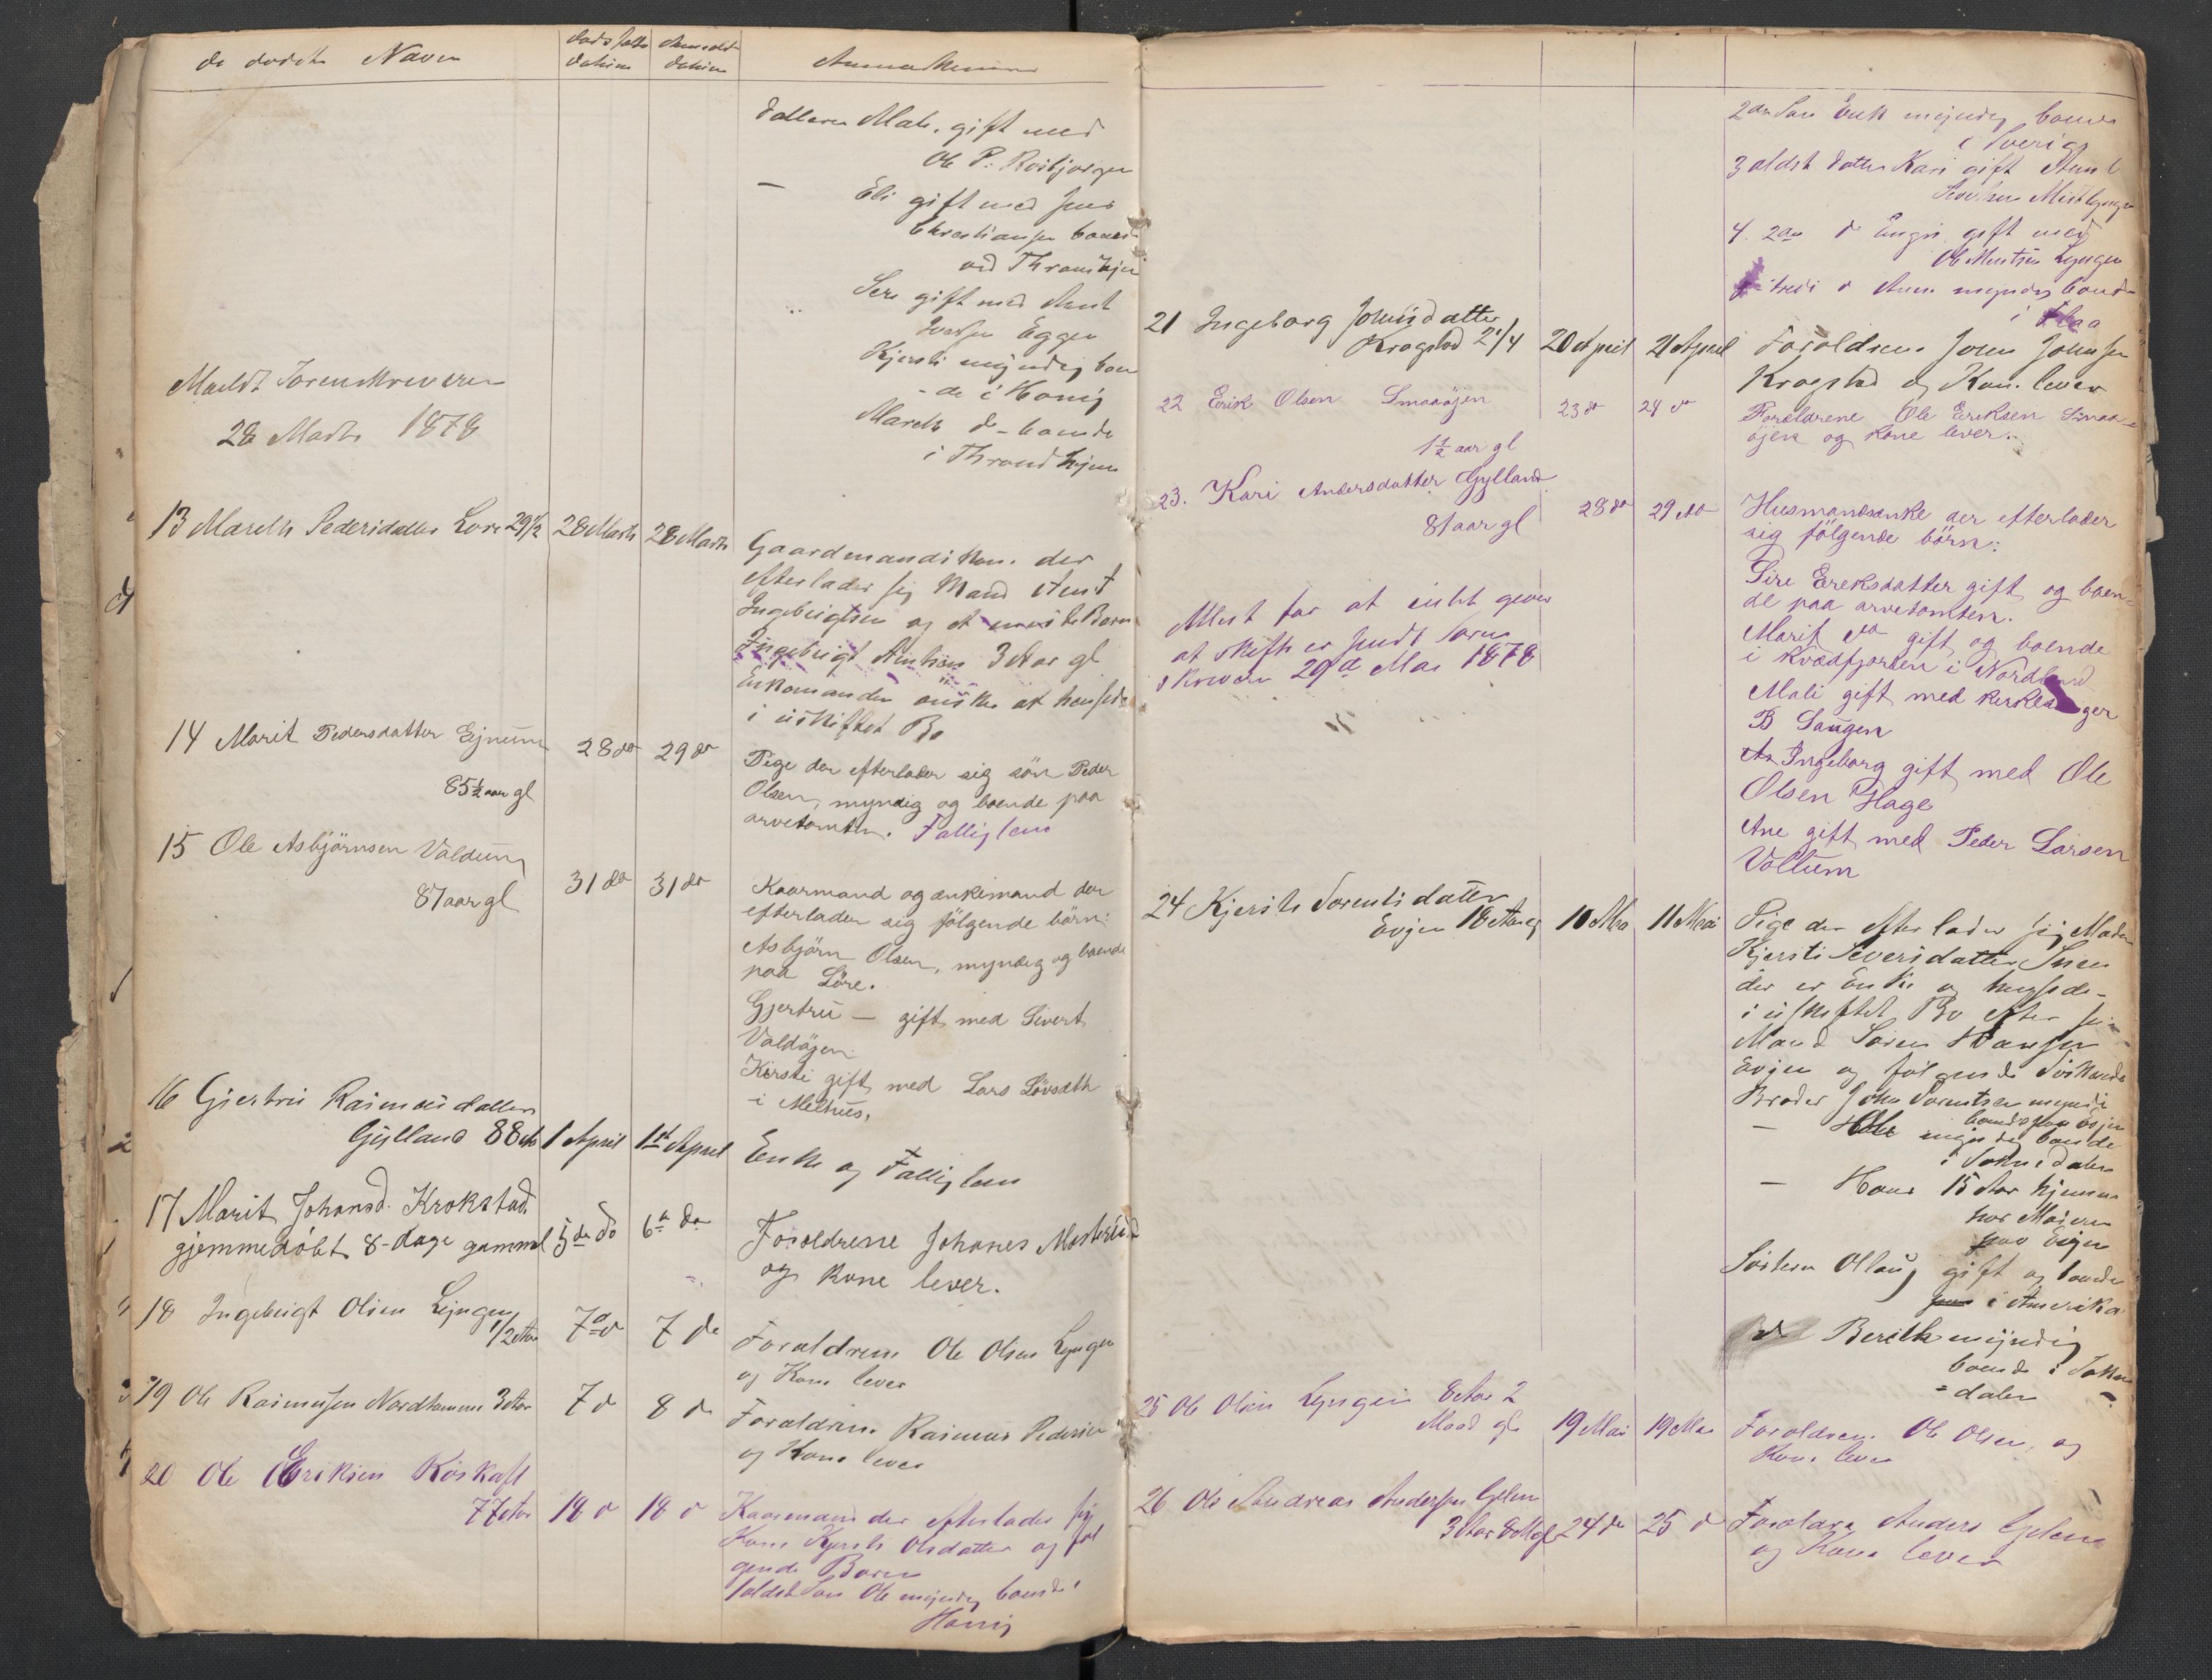 de dødes Navn
dødsfalls datum
Anmeldt datum
Anmærkninger
datteren Mali, gift med
Ole P. Rosbjørgen
— Eli gift med Jens
Christiansen boende
ved Thronhjem
Sere gift med Arnt
Iversen Eggen
Kjersti myndig boen
-de i Hønig
Mareth do - boende
i Throndhjem
Meldt Sorenskriveren
28 Marts 1878
13 Mareth Pedersdatter Løre 29½
28 Marts
28 Marts
Gaardmandskone der
efterlader sig Mand Arnt
Ingebrigtsen og et Barn
Ingebrigt Arntsen 3 Aar gl
Enkemanden ønsker at hensidde
i uskiftet Bo
14 Marit Pedersdatter Ejnum
85½ aar gl
28 do
29 do
Pige der efterlader sig søn Peder
Olsen, myndig og boende paa
arvetomten. Fattiglem
15 Ole Asbjörnsen Valdum
87 aar gl
31 do
31 do
Kaarmand og enkemand der
efterlader sig fölgende börn:
Asbjörn Olsen, myndig og boende
paa Löre.
Gjertru — gift med Sivert
Valdöyen
Kirsti gift med Lars Lövseth
i Melhus.
16 Gjertru Rasmusdatter
Gylland 88 Aar
1 April
1st April
Enke og Fattiglem
17 Marit Johansd. Krokstad.
gjemmedöbt 8-dage gammel
5de do
6te do
Foreldrene Johanes
og kone lever.
18 Ingebrigt Olsen Lyngen
1/2 Aar
7 do
7 do
Foreldrene Ole Olsen Lyngen
og Kone lever
19 Ole Rasmussen Nordhammer 3 Aar
7 do
8 do
Foreldrene Rasmus Pedersen
og Kone lever
20 Ole Eriksen Röskaft
77 Aar
18 do
18 do
Kaarmand der efterlader sig
Kone Kjersti Olsdatter og föl
gende Børn
1 ældst Søn Ole myndig boende i
Hønig
2den Søn Erik myndig boende
i Sverig
3 ældst datter Kari gift Arnt
Midtlyngen
4. 2den do Ingri gift med
Ole Mentsen Lyngen
tredi do Anne myndig boende
i Flaa
21 Ingeborg Johnsdatter
Krogstad 2/4
20 April
21 April
Foreldrene John Johnsen
Krogstad og Kone lever
22 Erik Olsen Smaaöjen
1½ aar gl
23 do
24 do
Foreldrene Ole Eriksen Smaa-
öjen og kone lever.
23. Kari Andersdatter Gylland
81 aar gl
28 do
29 do
Husmandsenke der efterlader
sig fölgende börn:
Sire Ereksdatter gift og boen-
de paa arvetomten.
Marit do gift og boende
i Kvædfjorden i Nordland
Mali gift med kirkesanger
B Saugen
Ingeborg gift med Ole
Olsen Hage
Ane gift med Peder Larsen
Voltum
at skifte er sendt Soren
skriveren 29de Mai 1878
24 Kjersti Sorentsdatter
Evjen 18 Aar
10 Mai
11 Mai
Pige der efterlader sig Moder
Kjersti Seversdatter
der er Enke og hensidder
i uskiftet Bo efter sin
Mand Søren Hansen
Evjen og følgende Søskende
Broder John Sorentsen myndig
boende paa Evjen
— Ole myndig boende
i Soknedalen
— Hans 15 Aar hjemme
hos Moderen
paa Evjen
Søsteren Ollaug gift og boende
i Amerika
do Berith myndig
boende i Sokne
-dalen
25 Ole Olsen Lyngen 8 Aar 2
Maad gl
19 Mai
19 Mai
Foreldrene Ole Olsen og
Kone lever
26 Ole Andreas Andersen Gylen
3 Aar 8 M gl
24 do
25 do
Foreldre Anders Gylen
og Kone lever